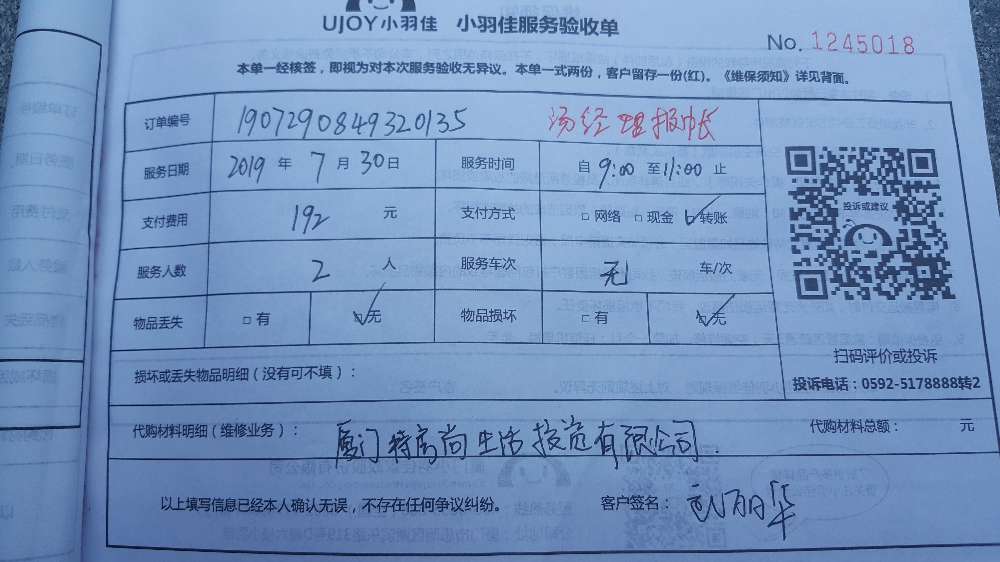 UJOY小羽佳 小羽佳服务验收单
No. 1245018
本单一经核签，即视为对本次服务验收无异议。本单一式两份，客户留存一份(红)。《维保须知》详见背面。
订单编号 1907290849320135 汤经理报帐
服务日期 2019 年 7 月 30 日 服务时间 自 9:00 至 11:00 止
支付费用 192 元 支付方式 □ 网络 □ 现金 ☑ 转账
服务人数 2 人 服务车次 无 车/次
物品丢失 □ 有 ☑ 无 物品损坏 □ 有 ☑ 无
投诉或建议
扫码评价或投诉
投诉电话：0592-5178888转2
损坏或丢失物品明细（没有可不填）：
代购材料明细（维修业务）： 厦门特房尚生活投资有限公司 代购材料总额： 元
以上填写信息已经本人确认无误，不存在任何争议纠纷。 客户签名： 丽华